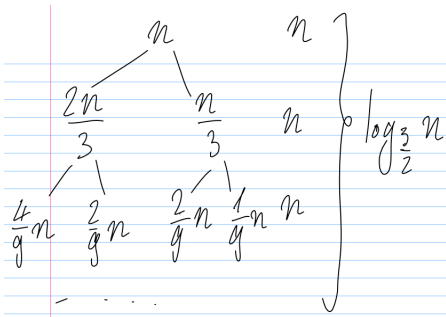 n n
2n/3 n/3 n log_{3/2} n
4/9 n 2/9 n 2/9 n 1/9 n n
- . . . .